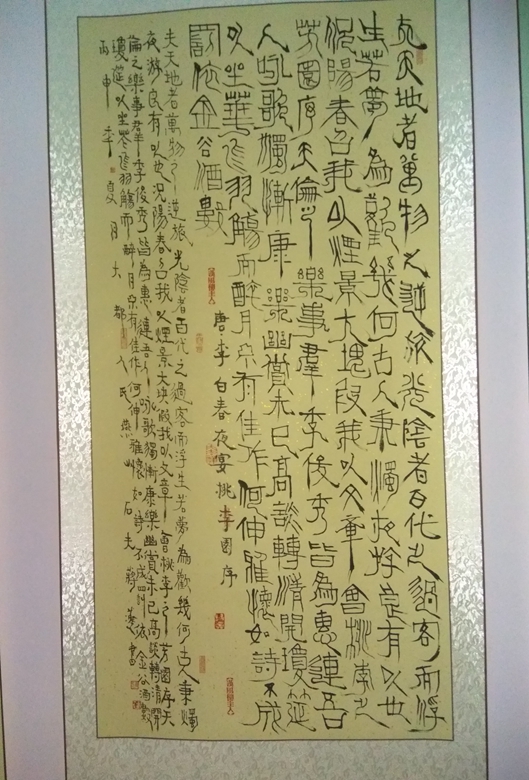 夫天地者萬物之逆旅光陰者百代之過客而浮
生若夢為歡幾何古人秉燭夜游良有以也
況陽春召我以煙景大塊假我以文章會桃李之
芳園序天倫之樂事羣季俊秀皆為惠連吾
人詠歌獨慚康樂幽賞未已高談轉清開瓊筵
以坐華飛羽觴而醉月不有佳作何伸雅懷如詩不成
罰依金谷酒數
唐李白春夜宴桃李園序
夫天地者萬物之逆旅光陰者百代之過客而浮生若夢為歡幾何古人秉燭
夜游良有以也況陽春召我以煙景大塊假我以文章會桃李之芳園序天
倫之樂事羣季俊秀皆為惠連吾人詠歌獨慚康樂幽賞未已高談轉清開
瓊筵以坐花飛羽觴而醉月不有佳作何伸雅懷如詩不成罰依金谷酒數
丙申季夏月 都人民 石夫蔣 書